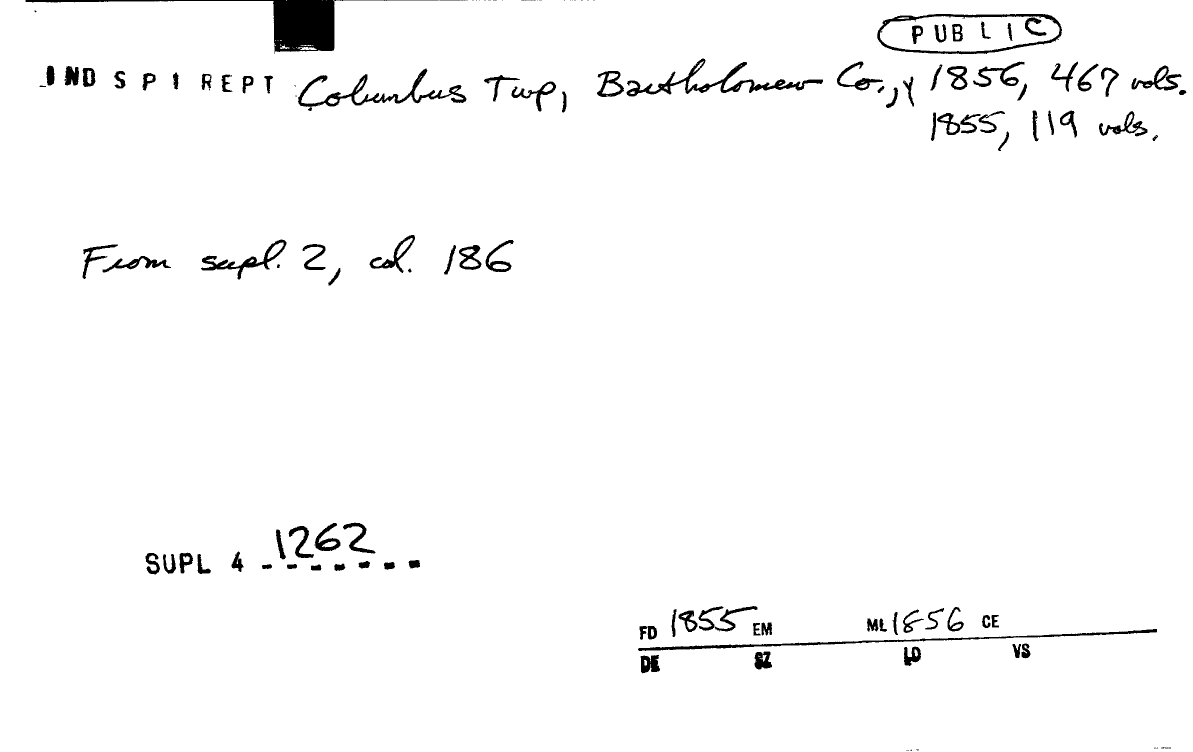 PUBLIC
IND SPI REPT Columbus Twp, Bartholomew Co., 1856, 467 vols.
1855, 119 vols.
From supl. 2, col. 186
SUPL 4 1262
FD 1855 EM ML 1856 CE
DE SZ LO VS